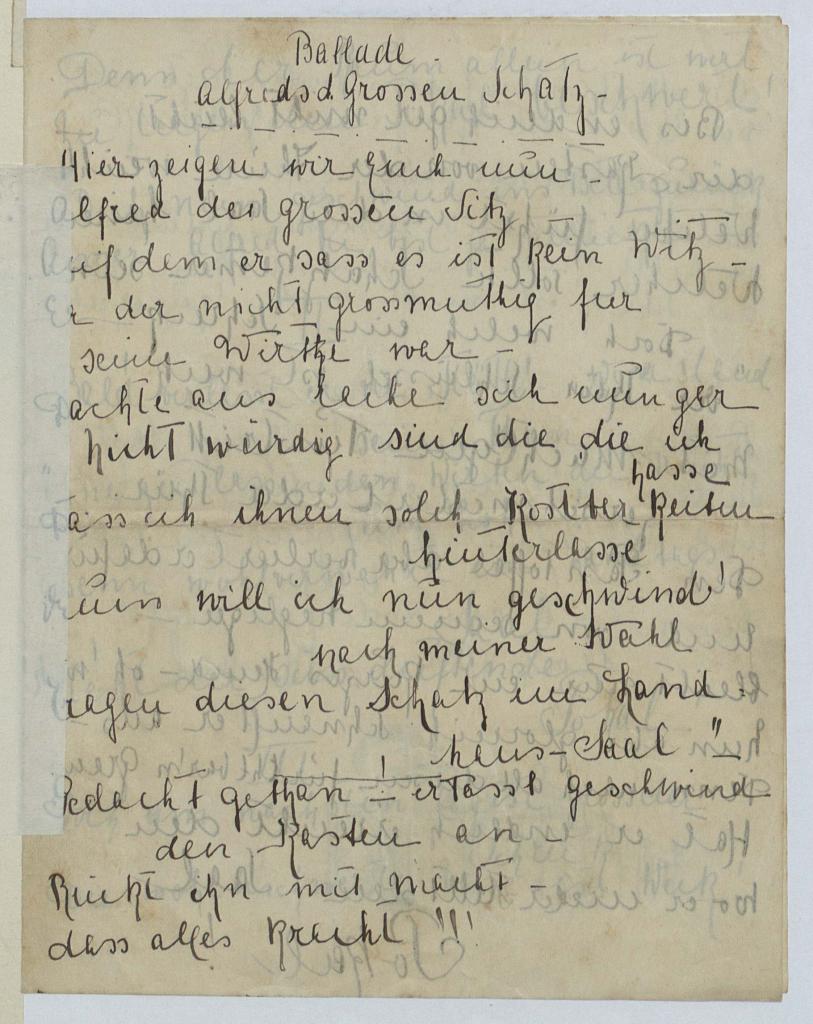 Ballade.
Alfreds d. Grossen Schatz -
Hier zeigen wir Euch nun -
lfred des grossen Sitz -
uf dem er sass es ist kein Witz -
r der nicht grossmuthig fur
seine Wirthe war -
achte aus Rache sich nun gar
Nicht würdig sind die, die ich
hasse
ass ich ihnen solch Kostber Keiten
hinterlasse
um will ich nun geschwind!
nach meiner Wahl
ragen diesen Schatz im Land -
haus-Saal "-
edacht gethan - erfasst geschwind
den Kasten an -
Rückt ihn mit macht -
dass alles kracht !!!